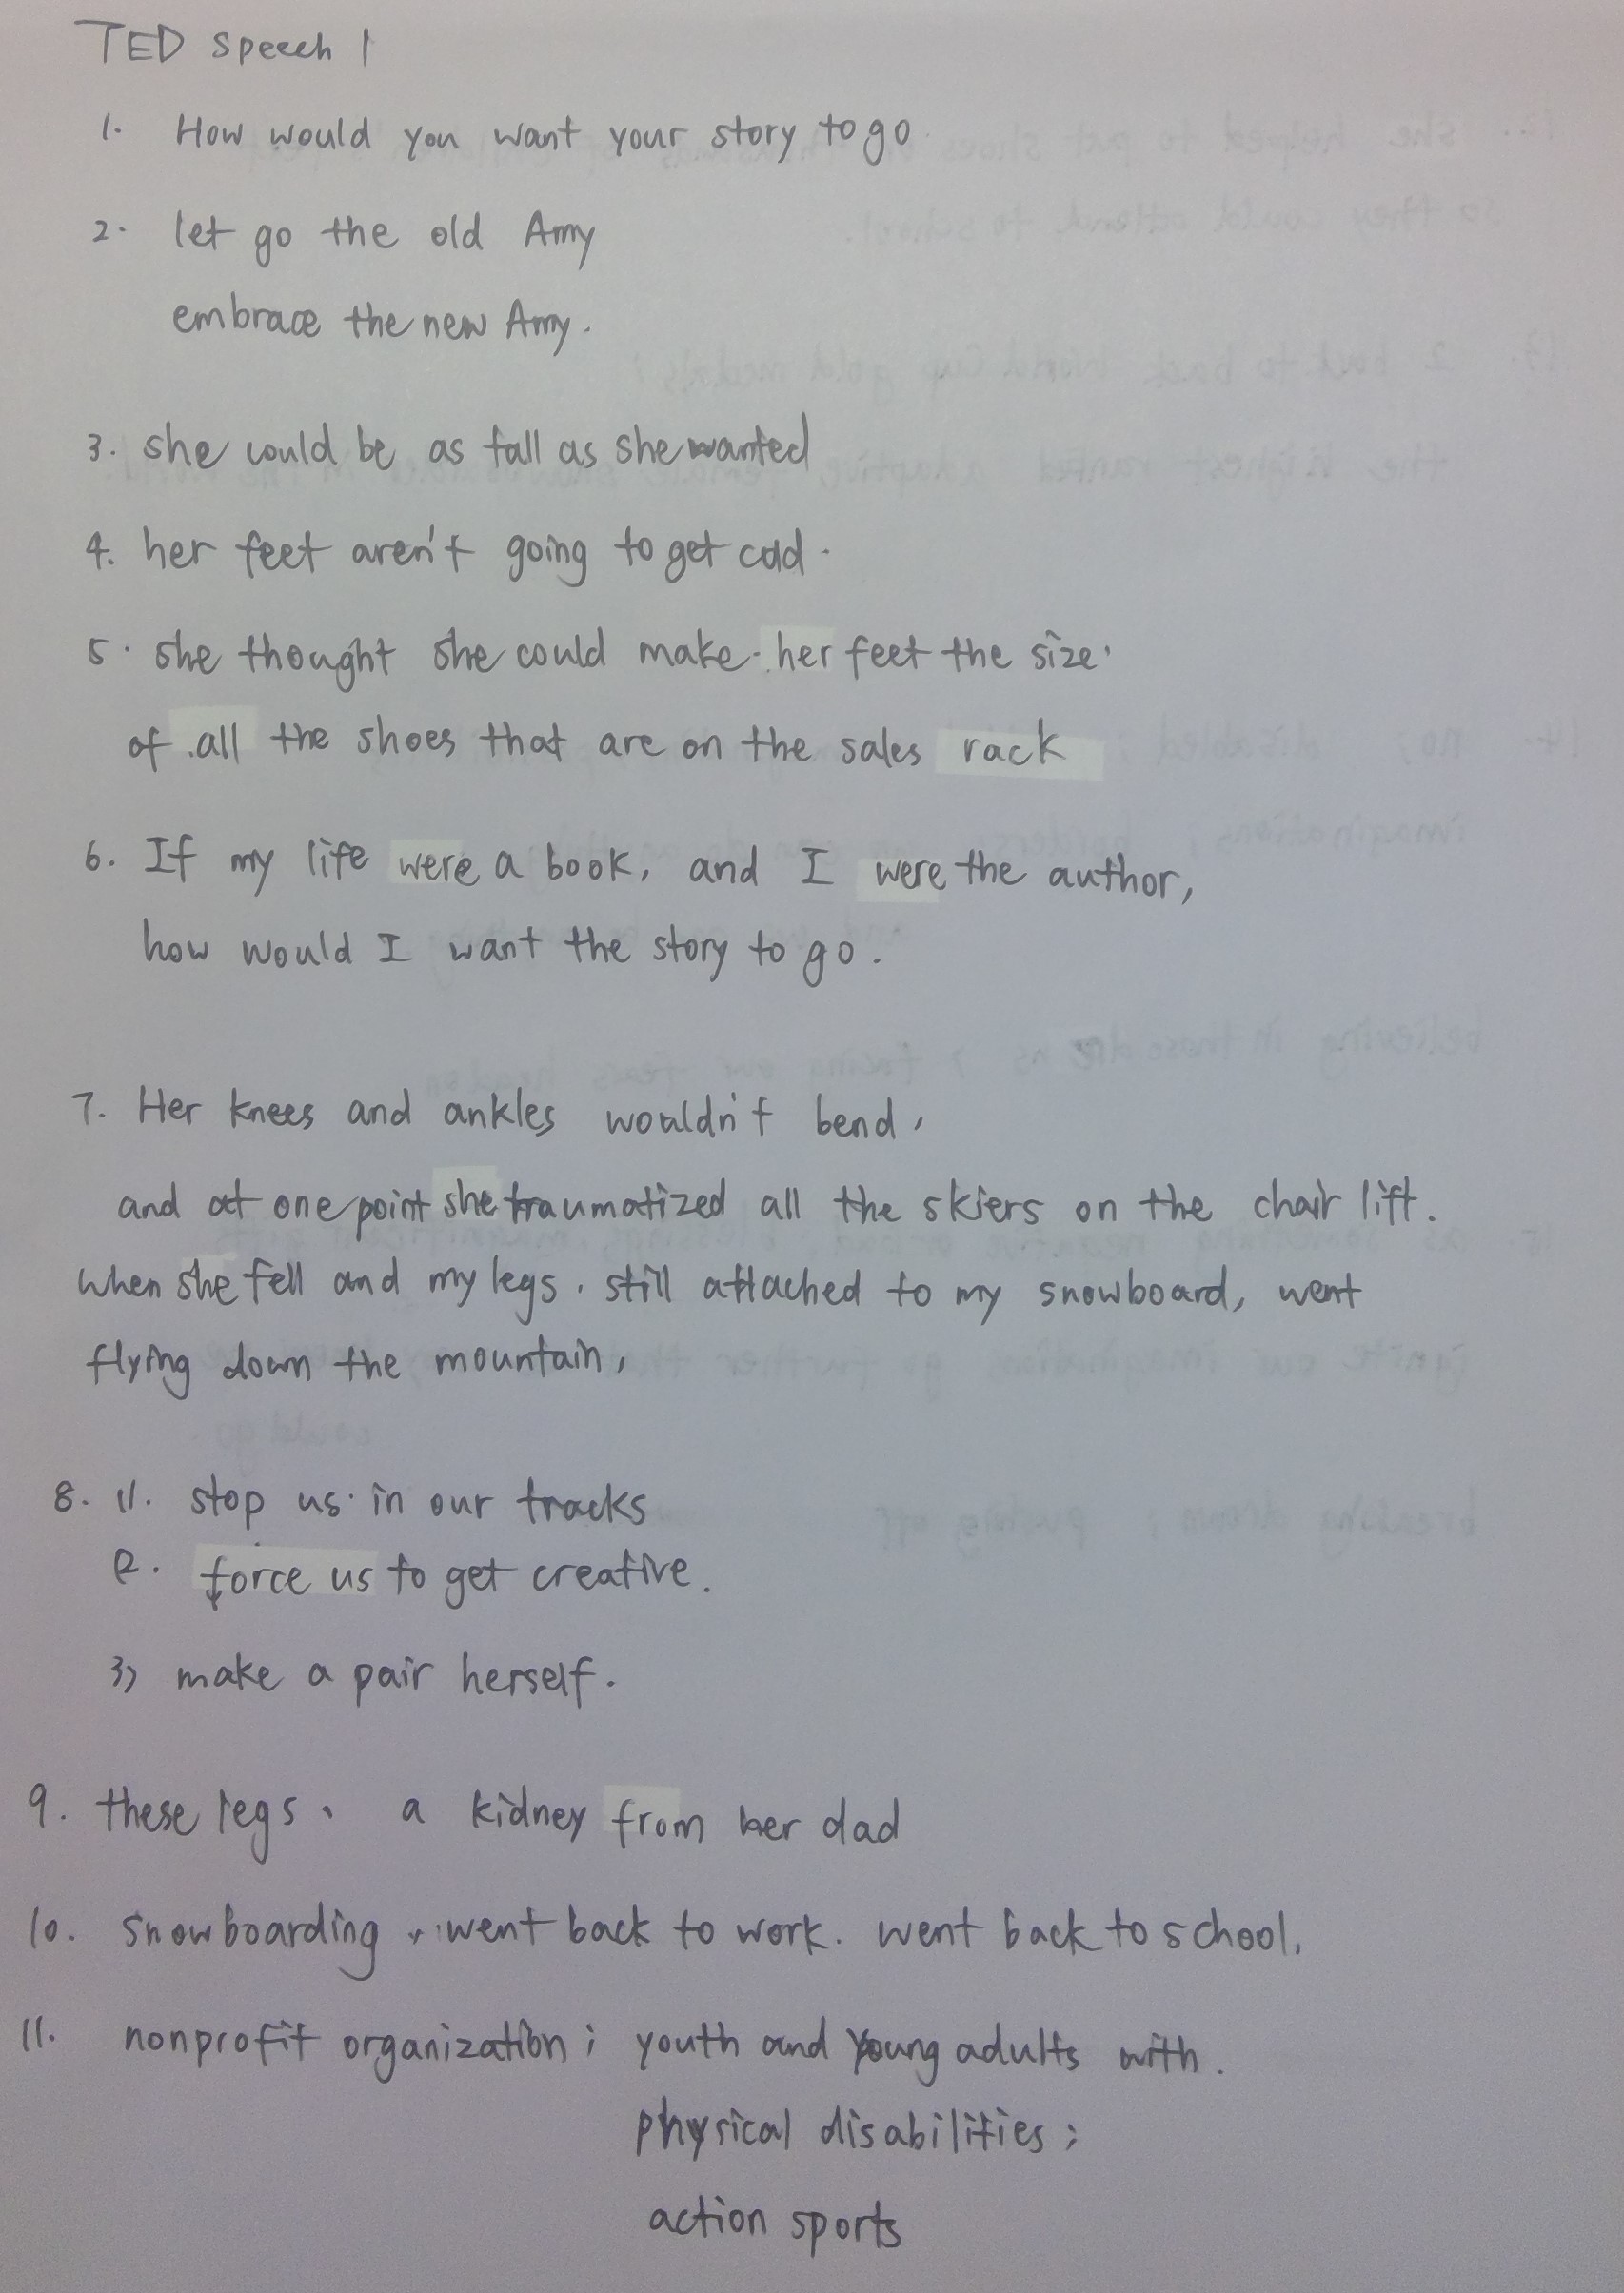 TED speech 1
1. How would you want your story to go
2. let go the old Amy
embrace the new Amy.
3. she could be as tall as she wanted
4. her feet aren't going to get cold.
5. she thought she could make her feet the size
of all the shoes that are on the sales rack
6. If my life were a book, and I were the author,
how would I want the story to go.
7. Her knees and ankles wouldn't bend,
and at one point she traumatized all the skiers on the chair lift.
when she fell and my legs, still attached to my snowboard, went
flying down the mountain,
8. 1). stop us in our tracks
2. force us to get creative.
3) make a pair herself.
9. these legs, a kidney from her dad
10. snowboarding, went back to work. went back to school.
11. nonprofit organization; youth and young adults with.
physical disabilities;
action sports